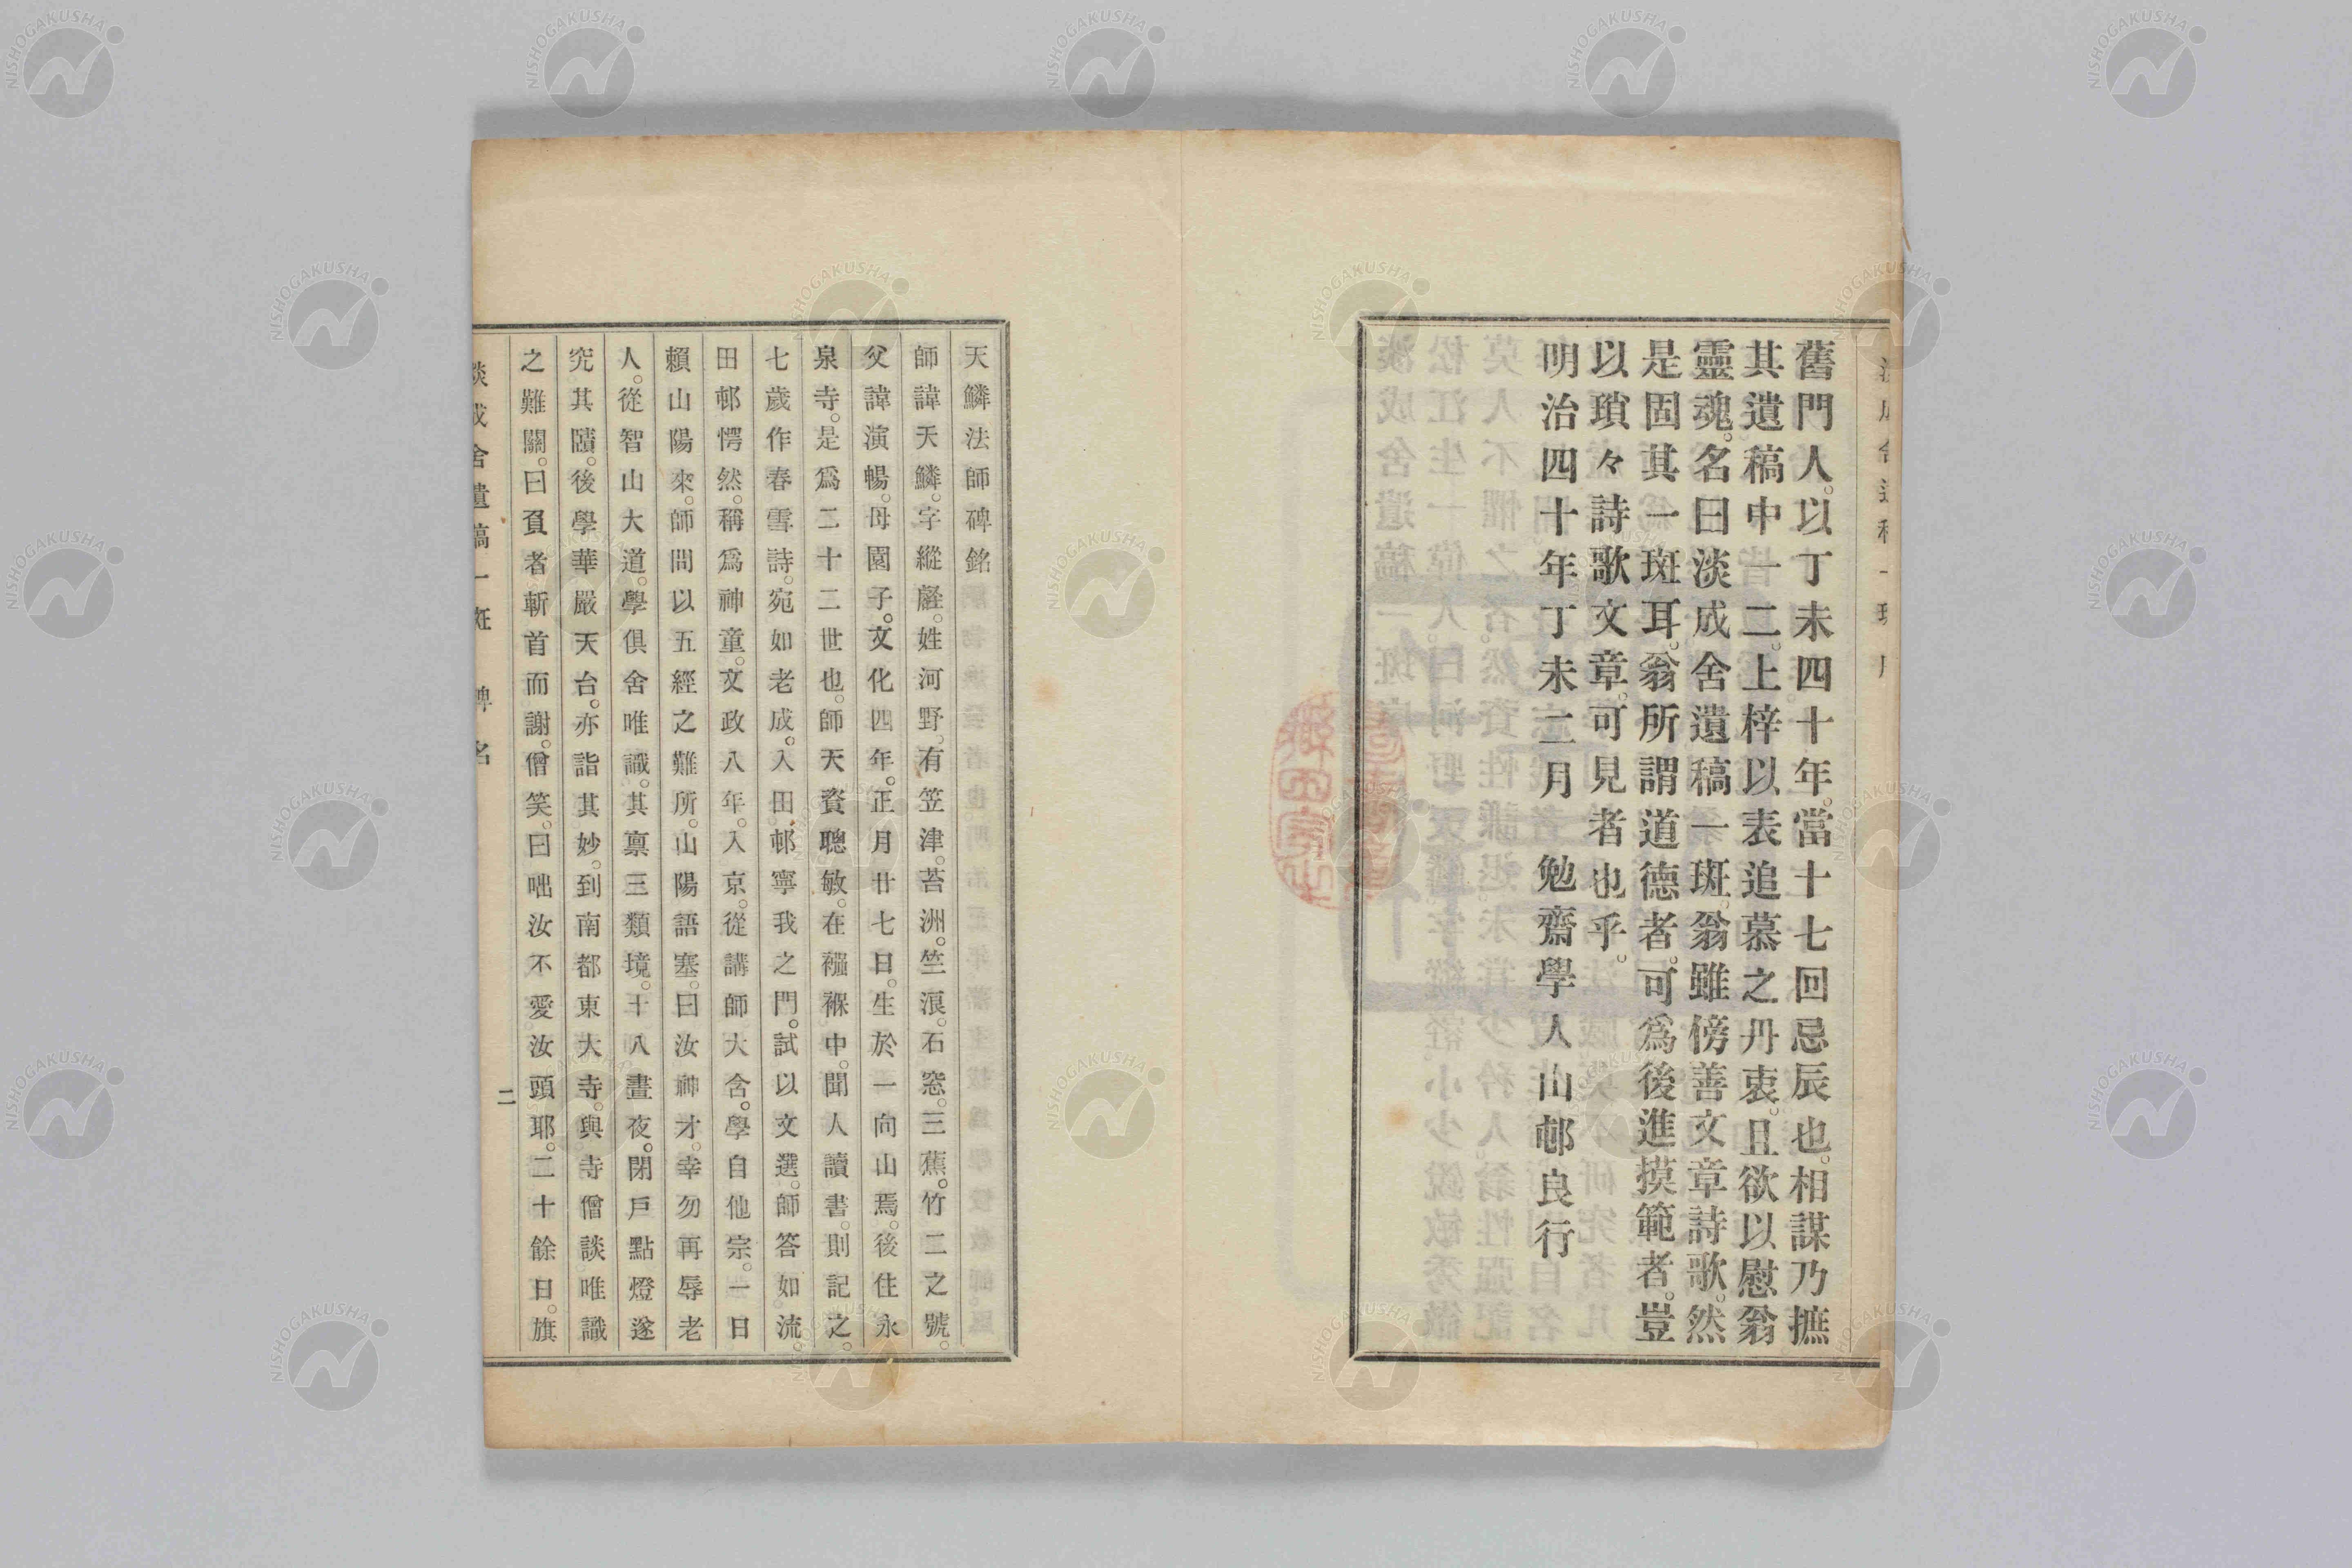 舊門人。以丁未四十年。當十七回忌辰也。相謀乃摭
其遺稿中一二。上梓以表追慕之丹衷。且欲以慰翁
靈魂。名曰淡成舍遺稿一斑。翁雖傍善文章詩歌。然
是固其一斑耳。翁所謂道德者。可爲後進摸範者。豈
以瑣々詩歌文章。可見者也乎。
明治四十年丁未二月 勉齋學人山邨良行
天鱗法師碑銘
師諱天鱗。字縱壑。姓河野。有笠津。苔洲。竺浪。石窓。三蕉。竹二之號。
父諱演暢。母園子。文化四年。正月廿七日。生於一向山焉。後住永
泉寺。是爲二十二世也。師天資聰敏。在襁褓中。聞人讀書。則記之。
七歲作春雪詩。宛如老成。入田邨寧我之門。試以文選。師答如流。
田邨愕然。稱爲神童。文政八年。入京。從講師大含。學自他宗。一日
賴山陽來。師問以五經之難所。山陽語塞。曰汝神才。幸勿再辱老
人。從智山大道。學俱舍唯識。其禀三類境。十八晝夜。閉戶點燈遂
究其賾。後學華嚴天台。亦詣其妙。到南都東大寺。與寺僧談唯識
之難關。曰負者斬首而謝。僧笑。曰咄汝不愛汝頭耶。二十餘日。旗
淡成舍遺稿一斑 碑名 二
NISHOGAKUSHA